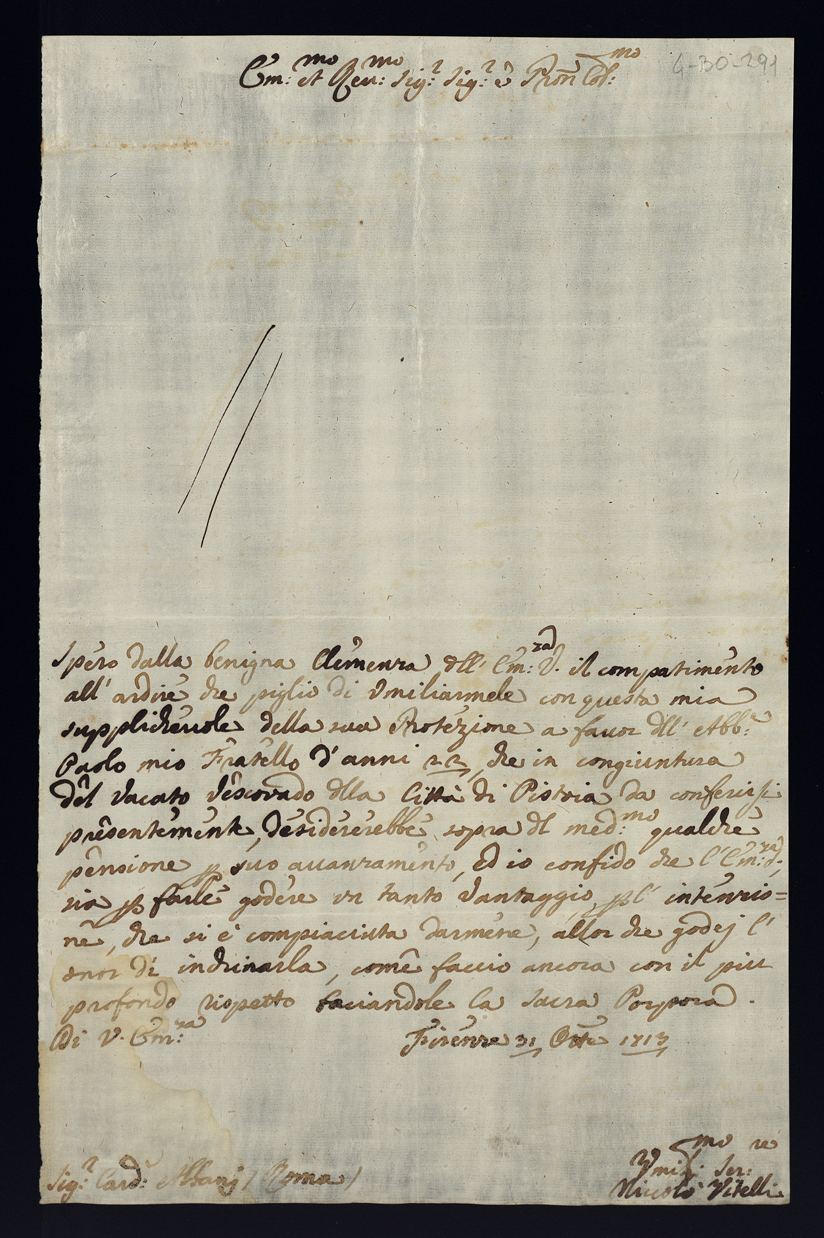 Em:mo et Reu:mo Sig:r Sig:r e Pron Col:mo
4-BO-291
Spero dalla benigna Clemenza dll' Em:za V. il compatimento
all' ardire che piglio di Vmiliarmele con questa mia
supplicheuole della sua Protezione a fauor dll' Abb:e
Paolo mio Fratello d' anni 22, che in congiuntura
del Vacato Vescovado dlla Città di Pistoia da conferirsi
presentemente, desidererebbe sopra dl med:mo qualche
pensione p suo auanzamento, ed io confido che l' Em:za V.
sia p farle godere vn tanto Vantaggio, p l' intenzio=
ne, che si è compiaciuta darmene, allor che godej l'
onor di inchinarla, come faccio ancora con il più
profondo rispetto baciandole la Sacra Porpora.
Di V. Em:za Firenze 31 Ottre 1713
Vmil:mo Ser:re
Sig:r Card: Albanj / Roma /
Niccolò Vitelli